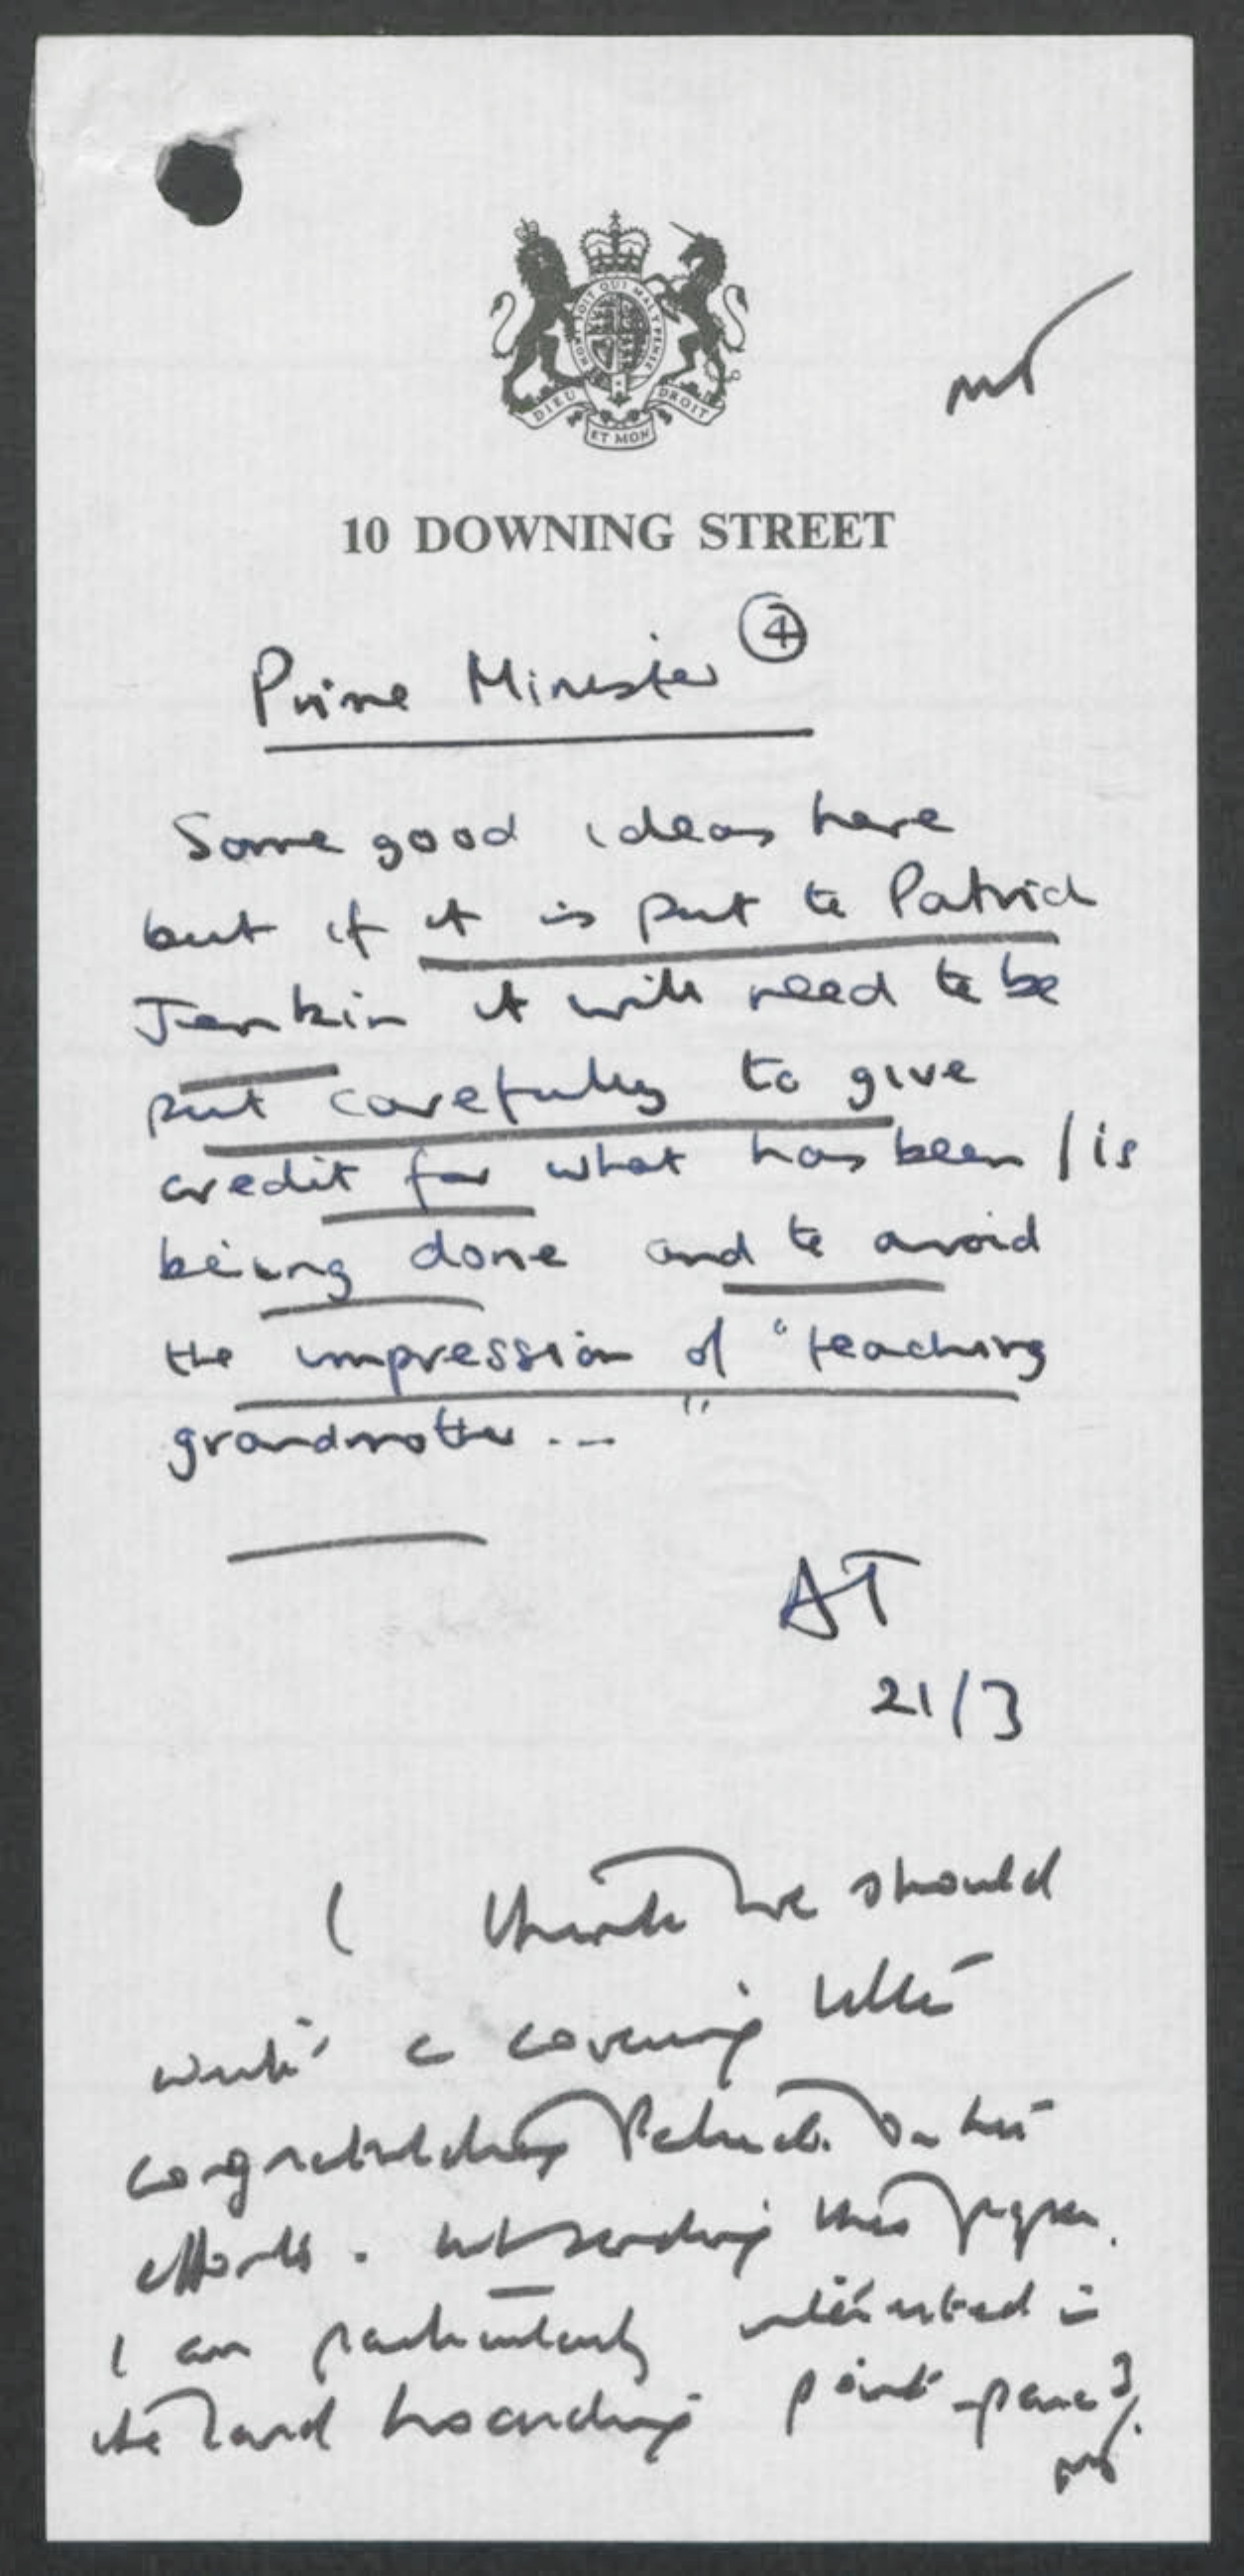 HONI SOIT QUI MAL Y PENSE
DIEU ET MON DROIT
mt
10 DOWNING STREET
Prime Minister ④
Some good ideas here
but if it is put to Patrick
Jenkin it will need to be
put carefully to give
credit for what has been / is
being done and to avoid
the impression of "teaching
grandmother..."
AT
21/3
I think we should
write a covering letter
congratulating Patrick on his
efforts. but sending this paper.
I am particularly interested in
the land hoarding point - para 3.
mt